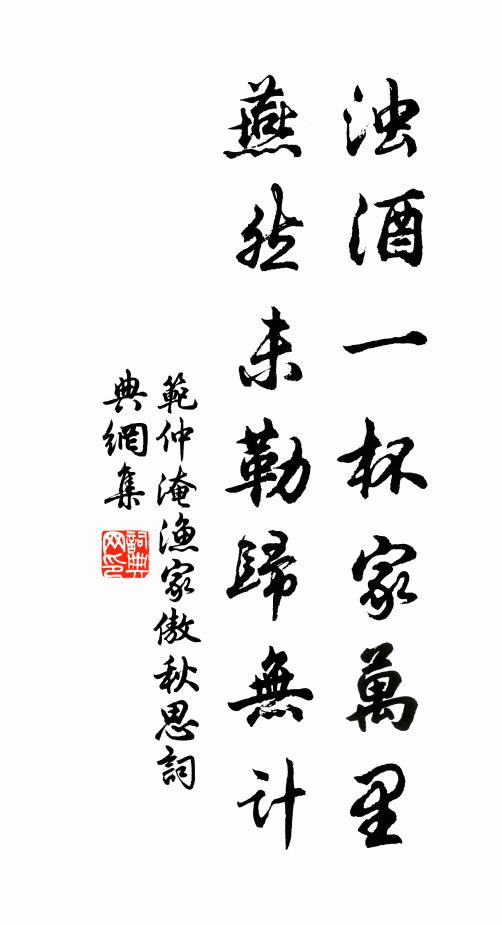 浊酒一杯家萬里
燕然未勒歸無計
範仲淹漁家傲秋思詞
典網集
詞典网印